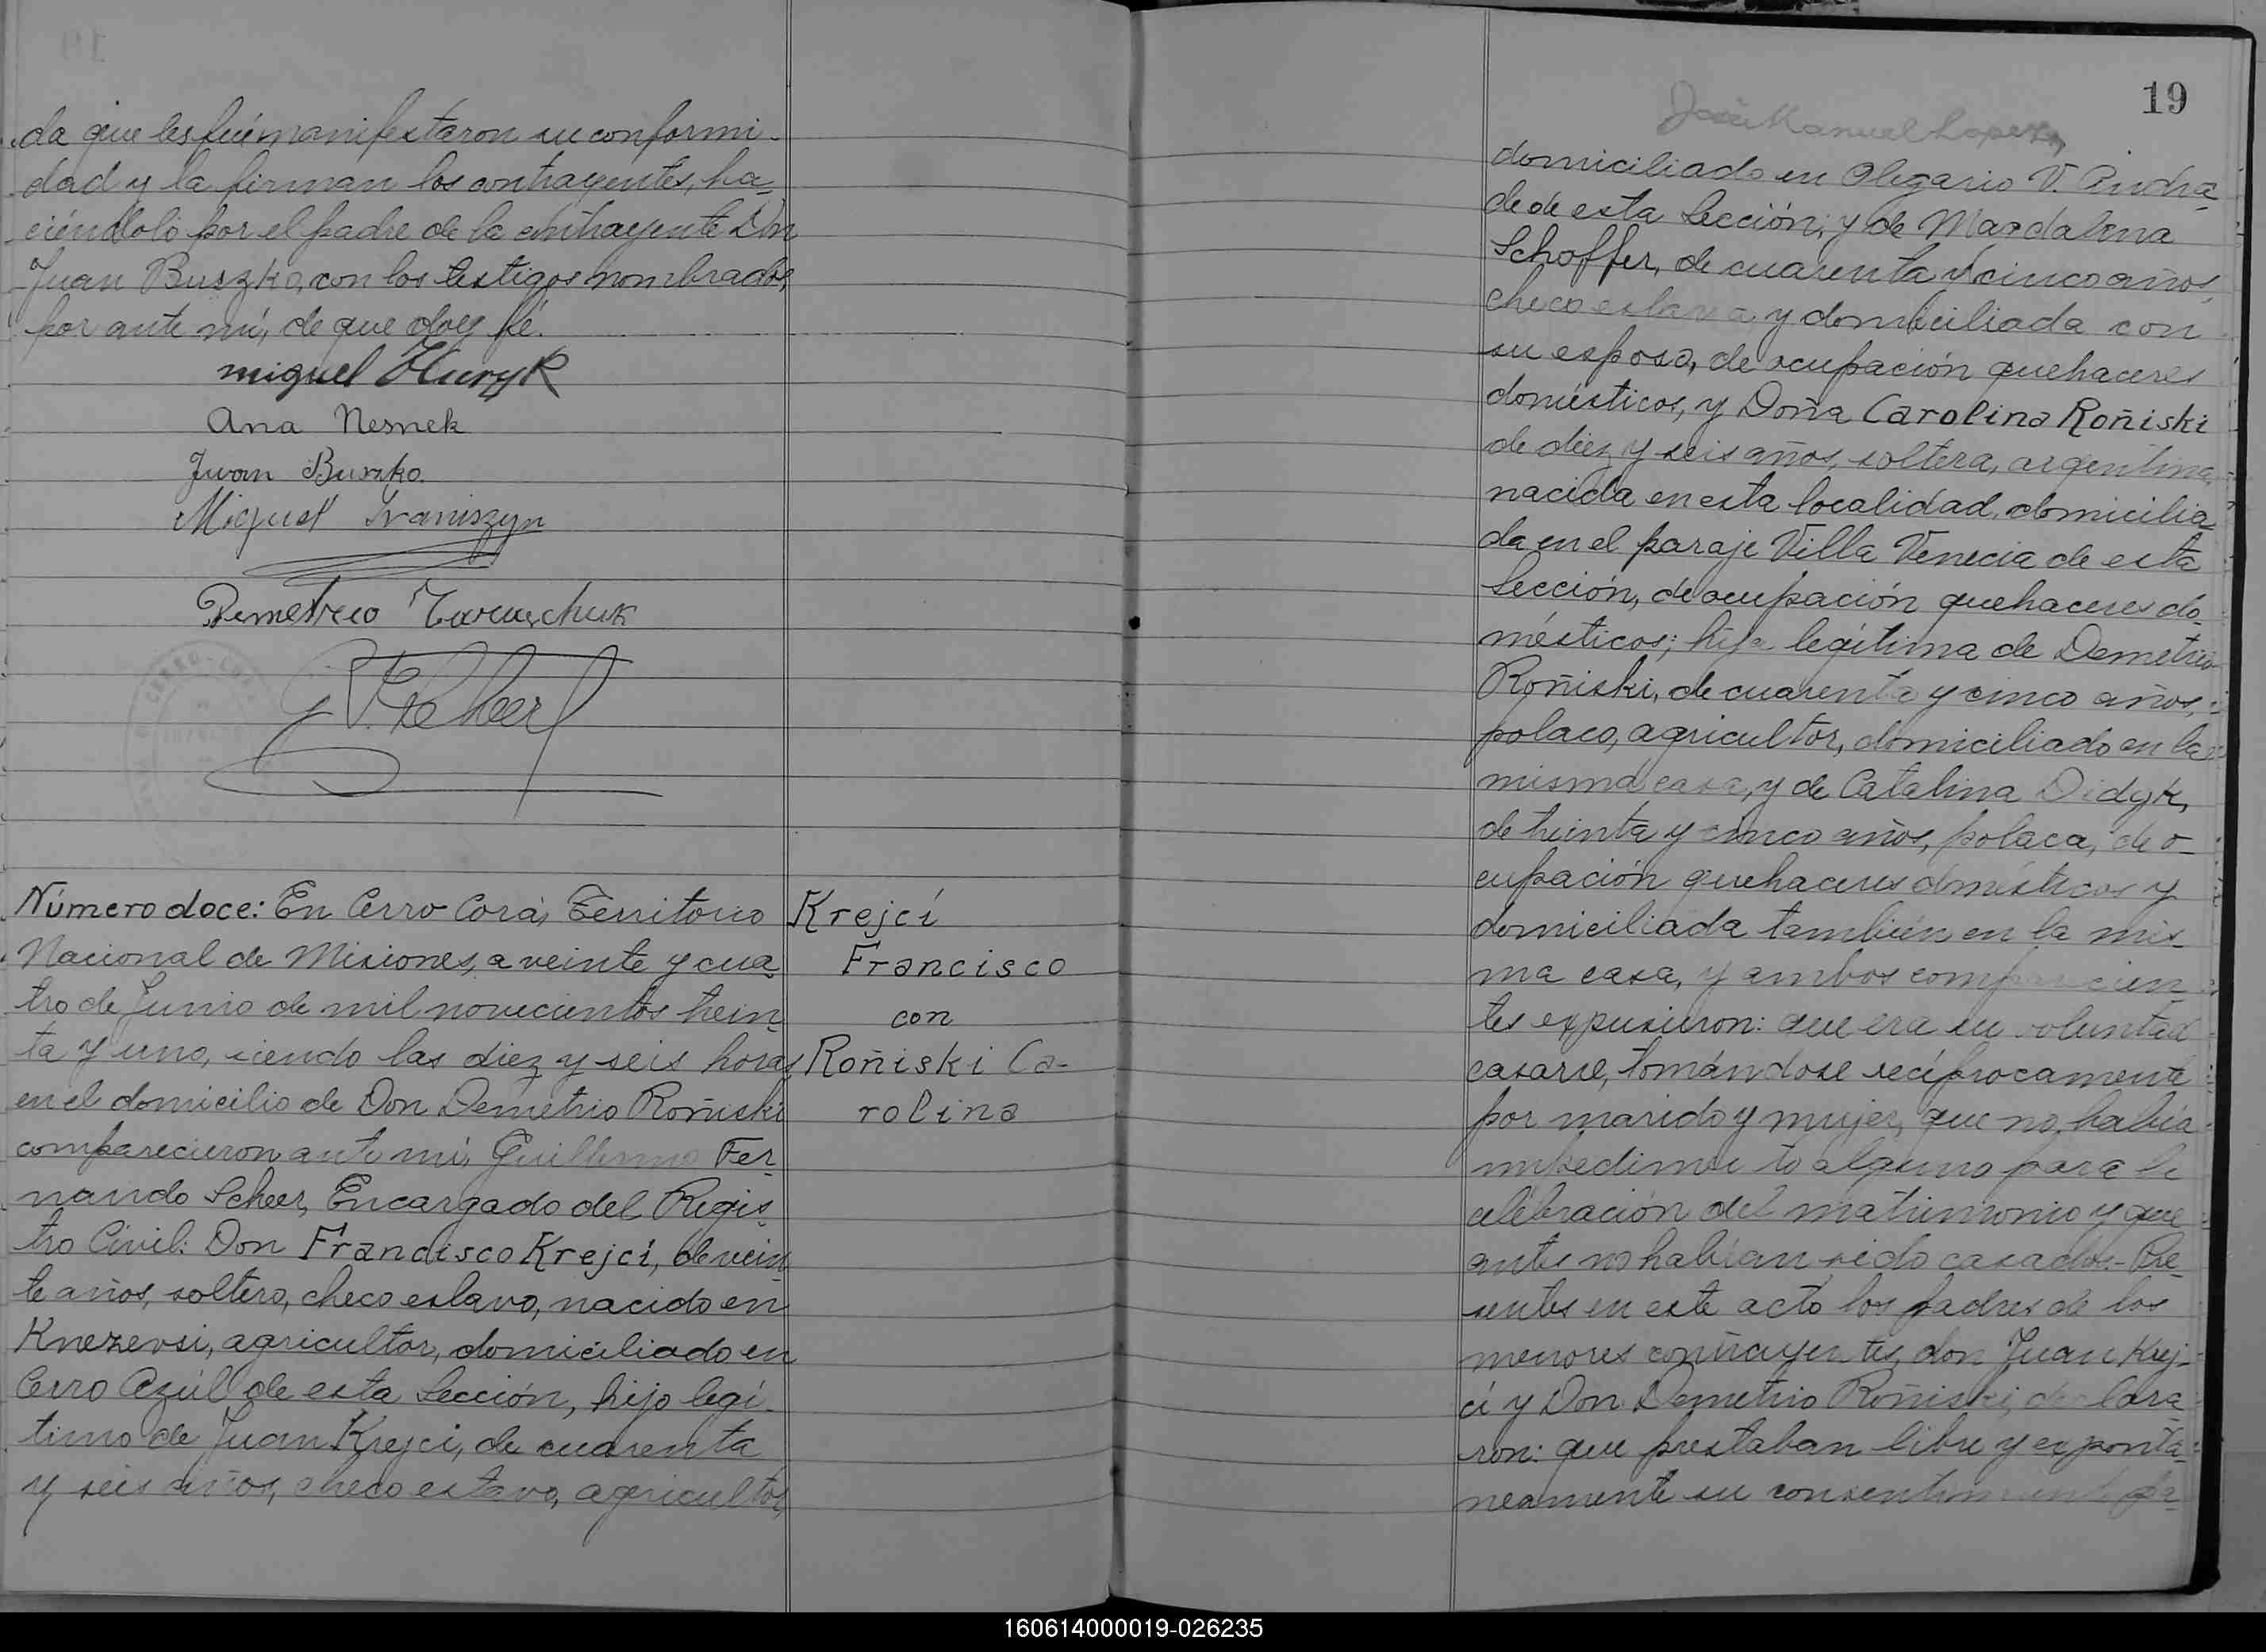 da que les fué manifestaron su conformi-
dad y la firman los contrayentes, ha-
ciéndolo por el padre de la contrayente Don
Juan Buszko, con los testigos nombrados,
por ante mí, de que doy fé.
miguel Huryk
Ana Nesnek
Juan Buszko
Miguel Ivaniszyn
Demetrio
G. F. Scheer
Número doce: En Cerro Corá, Territorio
Nacional de Misiones, a veinte y cua-
tro de Junio de mil novecientos trein-
ta y uno, siendo las diez y seis horas,
en el domicilio de Don Demetrio Roñiski
comparecieron ante mí, Guillermo Fer-
nando Scheer, Encargado del Regis-
tro Civil: Don Francisco Krejcí, de vein-
te años, soltero, checo eslavo, nacido en
Knezevsi, agricultor, domiciliado en
Cerro Azúl de esta Sección, hijo legí-
timo de Juan Krejci, de cuarenta
y seis años, checo eslavo, agricultor,
Krejcí
Francisco
con
Roñiski Ca-
rolina
19
José Manuel Lopez
domiciliado en Olegario V. Andra-
de de esta Sección; y de Magdalena
Schoffer, de cuarenta y cinco años,
checo eslava y domiciliada con
su esposo, de ocupación quehaceres
domésticos, y Doña Carolina Roñiski
de diez y seis años, soltera, argentina,
nacida en esta localidad, domicilia-
da en el paraje Villa Venecia de esta
Sección, de ocupación quehaceres do-
mésticos; hija legítima de Demetrio
Roñiski, de cuarenta y cinco años,
polaco, agricultor, domiciliado en la
misma casa, y de Catalina Didyk,
de treinta y cinco años, polaca, de o-
cupación quehaceres domésticos y
domiciliada también en la mis-
ma casa, y ambos comparecien-
tes expusieron: que era su voluntad
casarse, tomándose recíprocamente
por marido y mujer, que no había
impedimento alguno para la
celebración del matrimonio y que
antes no habían sido casados.- Pre-
sentes en este acto los padres de los
menores contrayentes, don Juan Krej-
cí y Don Demetrio Roñiski, declara-
ron: que prestaban libre y esponta-
neamente su consentimiento pa-
160614000019-026235